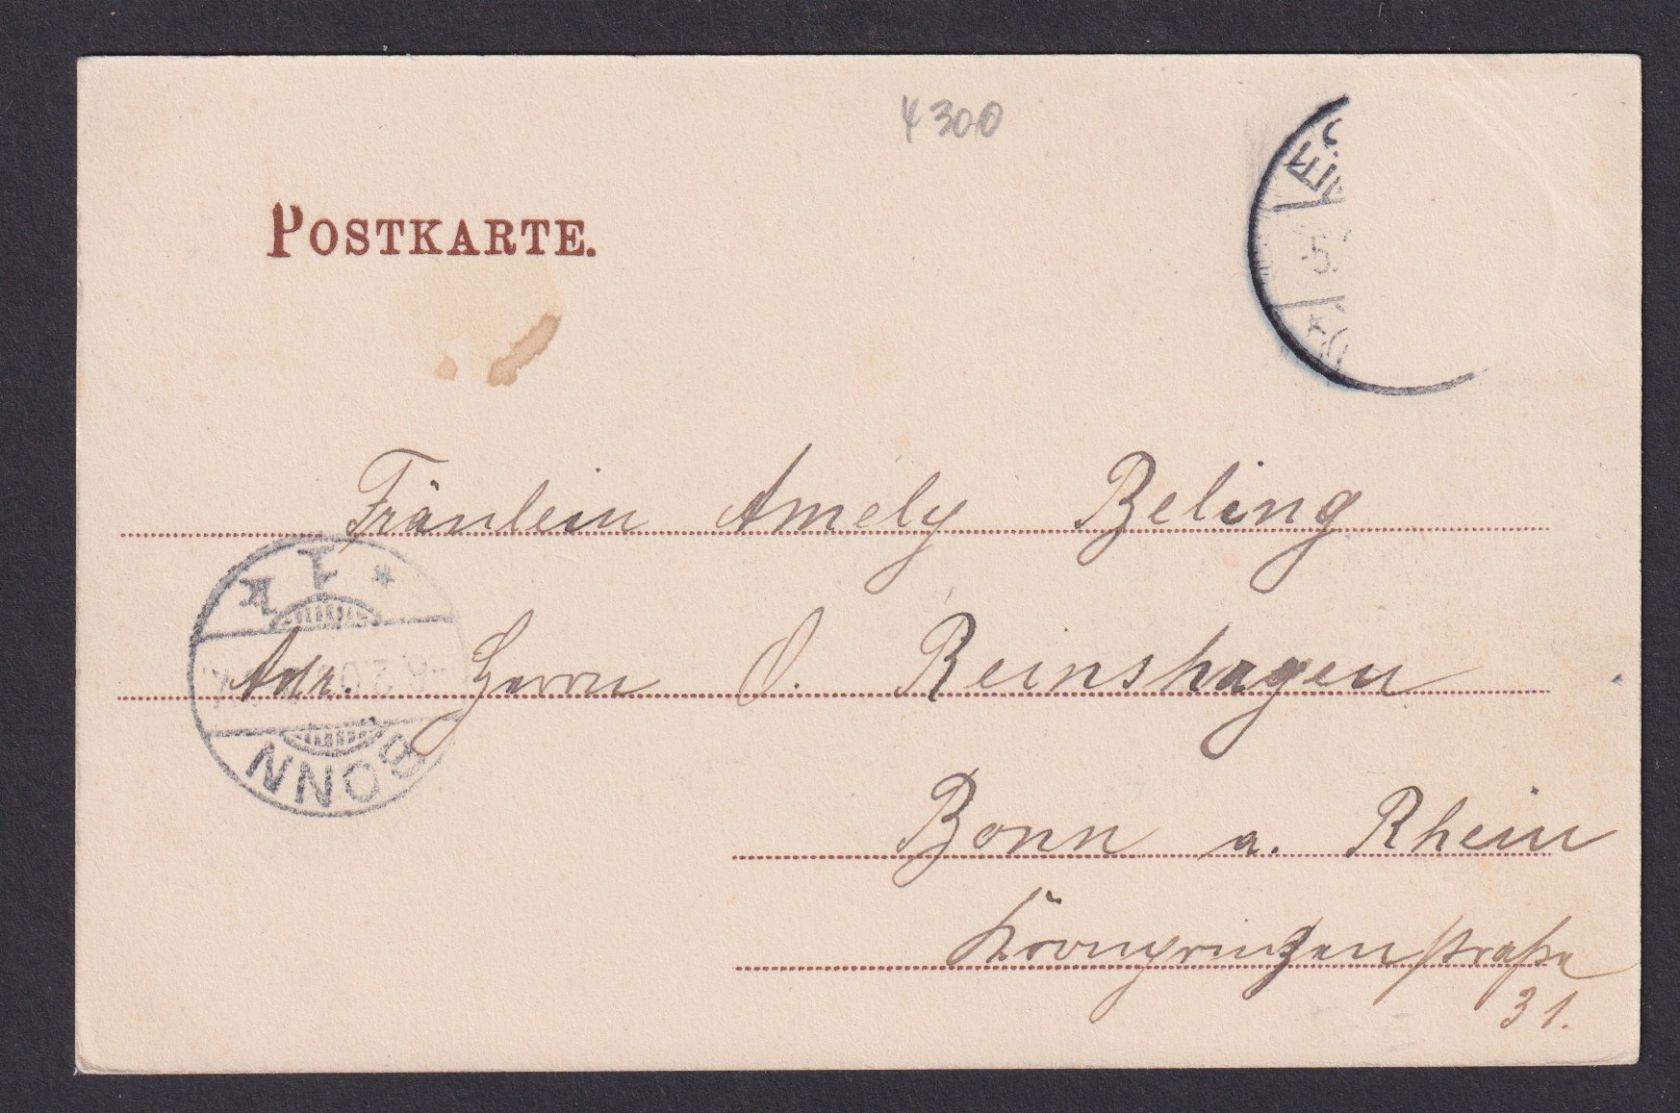 4300
POSTKARTE.
Fräulein Amely Beling
Adr. Herrn O. Reinshagen
Bonn a. Rhein
Kronprinzenstraße
31.
BONN
1
5.